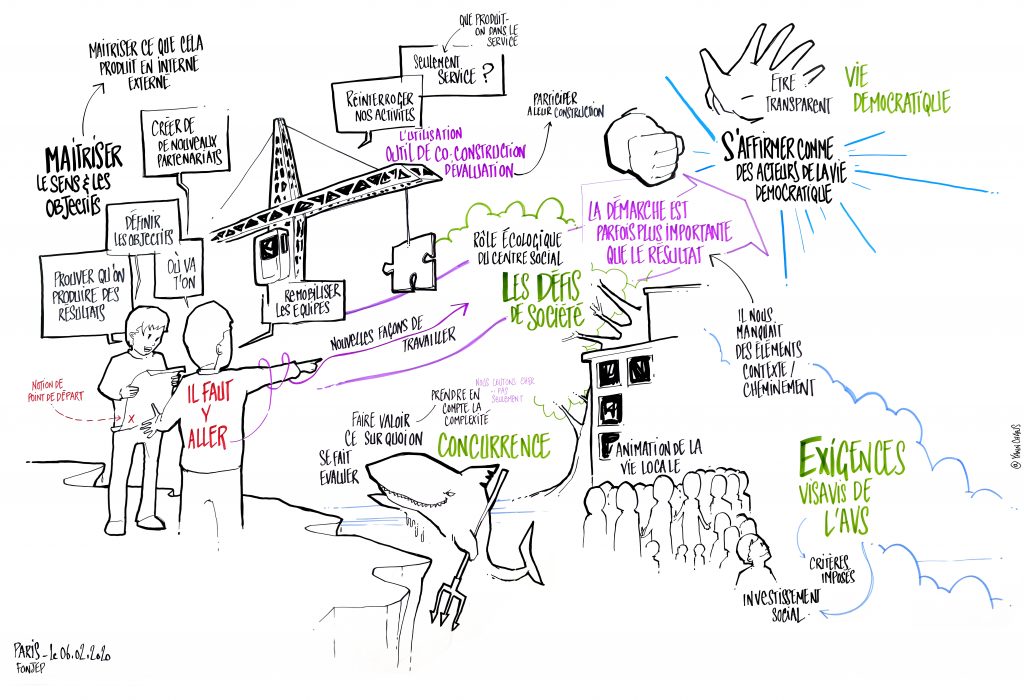 QUE PRODUIT-
ON DANS LE
SERVICE
SEULEMENT
SERVICE ?
RÉINTERROGER
NOS ACTIVITÉS
MAITRISER CE QUE CELA
PRODUIT EN INTERNE
EXTERNE
CRÉER DE
DE NOUVEAUX
PARTENARIATS
MAITRISER
LE SENS & LES
OBJECTIFS
DÉFINIR
LES OBJECTIFS
OÙ VA
T'ON
PROUVER QU'ON
PRODUIRE DES
RÉSULTATS
L'UTILISATION
OUTIL DE CO-CONSTRUCTION
D'ÉVALUATION
PARTICIPER
A LEUR CONSTRUCTION
ÊTRE
TRANSPARENT
VIE
DEMOCRATIQUE
S'AFFIRMER COMME
DES ACTEURS DE LA VIE
DEMOCRATIQUE
LA DÉMARCHE EST
PARFOIS PLUS IMPORTANTE
QUE LE RÉSULTAT
RÔLE ÉCOLOGIQUE
DU CENTRE SOCIAL
LES DÉFIS
DE SOCIÉTÉ
REMOBILISER
LES EQUIPES
NOUVELLES FAÇONS DE
TRAVAILLER
IL NOUS
MANQUAIT
DES ÉLÉMENTS
CONTEXTE /
CHEMINEMENT
NOTION DE
POINT DE DÉPART
X
IL FAUT
Y
ALLER
PAS
SEULEMENT
PRENDRE EN
COMPTE LA
COMPLEXITÉ
FAIRE VALOIR
CE SUR QUOI ON
SE FAIT
EVALUER
CONCURRENCE
ANIMATION DE LA
VIE LOCALE
EXIGENCES
VIS A VIS DE
L'AVS
CRITÈRES
IMPOSÉS
INVESTISSEMENT
SOCIAL
PARIS - le 06.02.2020
FONJEP